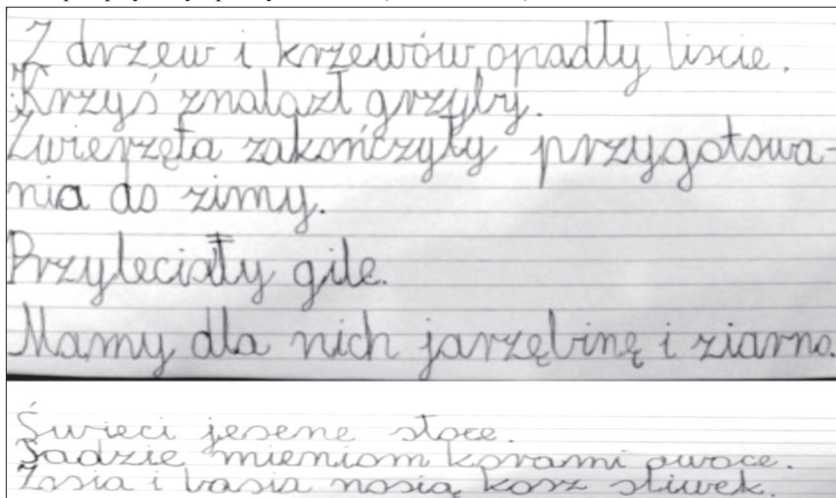 Z drzew i krzewów opadły liście.
Krzyś znalazł grzyby.
Zwierzęta zakończyły przygotowa-
nia do zimy.
Przyleciały gile.
Mamy dla nich jarzębinę i ziarno.
Świeci jesene słoce.
Sadzie mieniom korami owoce.
Zosia i basia nosią kosz sliwek.